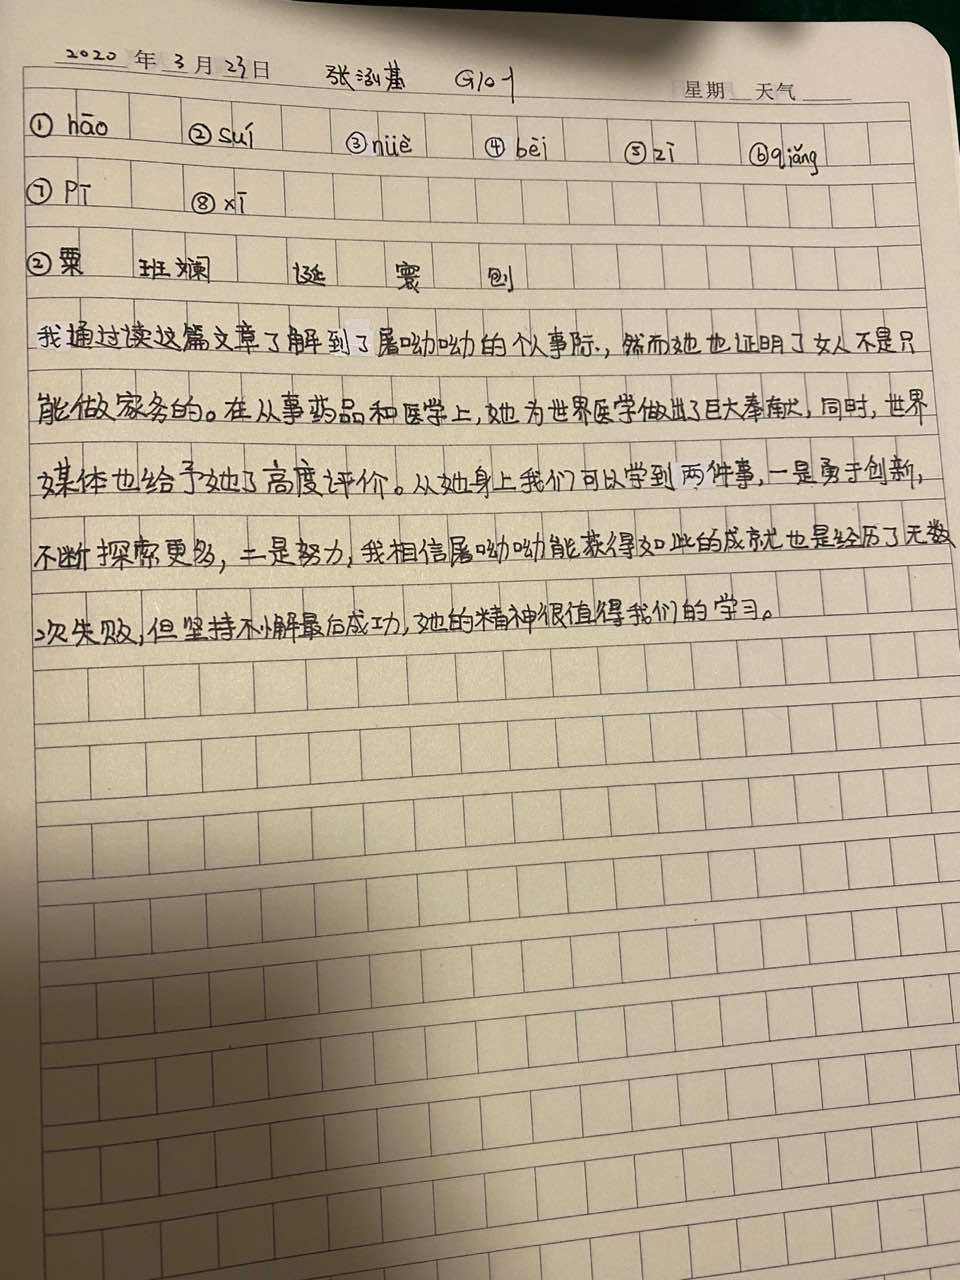 2020 年 3 月 23 日 张泓基 G10-1 星期 天气
① hāo ② suí ③ nüè ④ bèi ⑤ zī ⑥ qiǎng
⑦ Pī ⑧ xī
② 粟 班斓 诞 寰 刨
我通过读这篇文章了解到了屠呦呦的个人事际，然而她也证明了女人不是只
能做家务的。在从事药品和医学上，她为世界医学做出了巨大奉献，同时，世界
媒体也给予她了高度评价。从她身上我们可以学到两件事，一是勇于创新，
不断探索更多，二是努力，我相信屠呦呦能获得如此的成就也是经历了无数
次失败，但坚持不懈最后成功，她的精神很值得我们的学习。